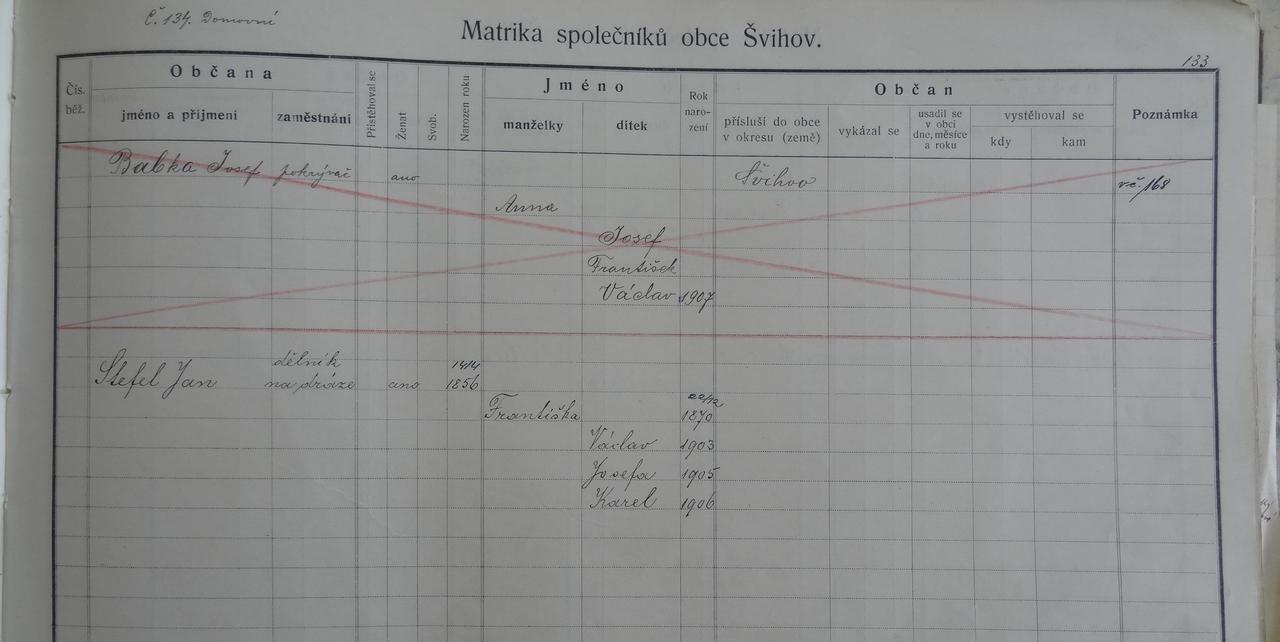 Č. 134. Domovní
Matrika společníků obce Švihov.
133
Čís. běž.
Občana
jméno a příjmení
zaměstnání
Přistěhoval se
Ženat
Svob.
Narozen roku
Jméno
manželky
dítek
Rok naro- zení
Občan
přísluší do obce v okresu (země)
vykázal se
usadil se v obci dne, měsíce a roku
vystěhoval se
kdy
kam
Poznámka
Babka Josef pokrývač ano Švihov vč. 168
Anna
Josef
František
Václav 1907
dělník 14/4
Štefel Jan na dráze ano 1856
22/12
Františka 1870
Václav 1903
Josefa 1905
Karel 1906